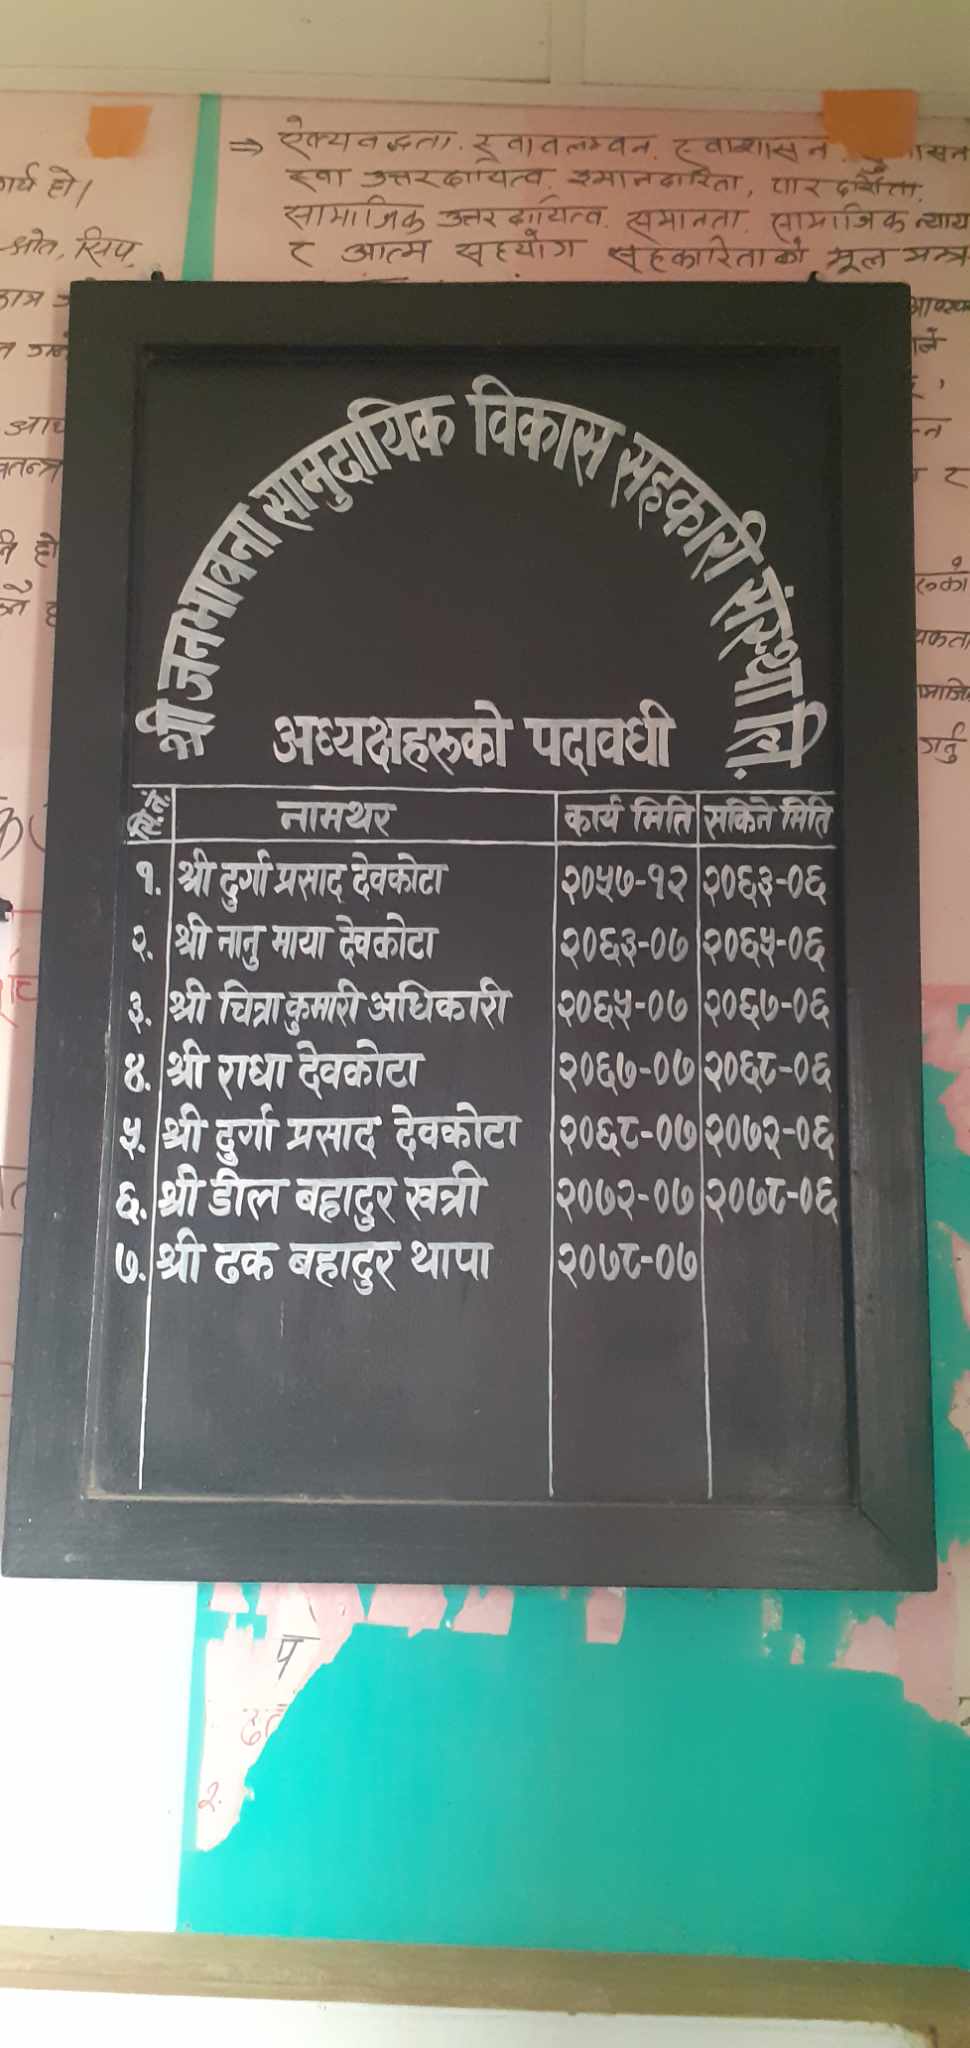 ⇒ ऐक्यवद्धता, स्वावलम्वन, स्वाशासन,
उत्तरदायित्व, इमानदारिता, पारदर्शिता,
सामाजिक उत्तरदायित्व, समानता, सामाजिक न्याय
र आत्म सहयोग सहकारिताको मूल मन्त्र
हो।
श्रोत, सिप,
श्री जनभावना सामुदायिक विकास सहकारी संस्था लि.
अध्यक्षहरुको पदावधी
सि.नं. नामथर कार्य मिति सकिने मिति
१. श्री दुर्गा प्रसाद देवकोटा २०५७-१२ २०६३-०६
२. श्री नानु माया देवकोटा २०६३-०७ २०६५-०६
३. श्री चित्रा कुमारी अधिकारी २०६५-०७ २०६७-०६
४. श्री राधा देवकोटा २०६७-०७ २०६८-०६
५. श्री दुर्गा प्रसाद देवकोटा २०६८-०७ २०७२-०६
६. श्री डील बहादुर खत्री २०७२-०७ २०७८-०६
७. श्री ढक बहादुर थापा २०७८-०७
प
२.